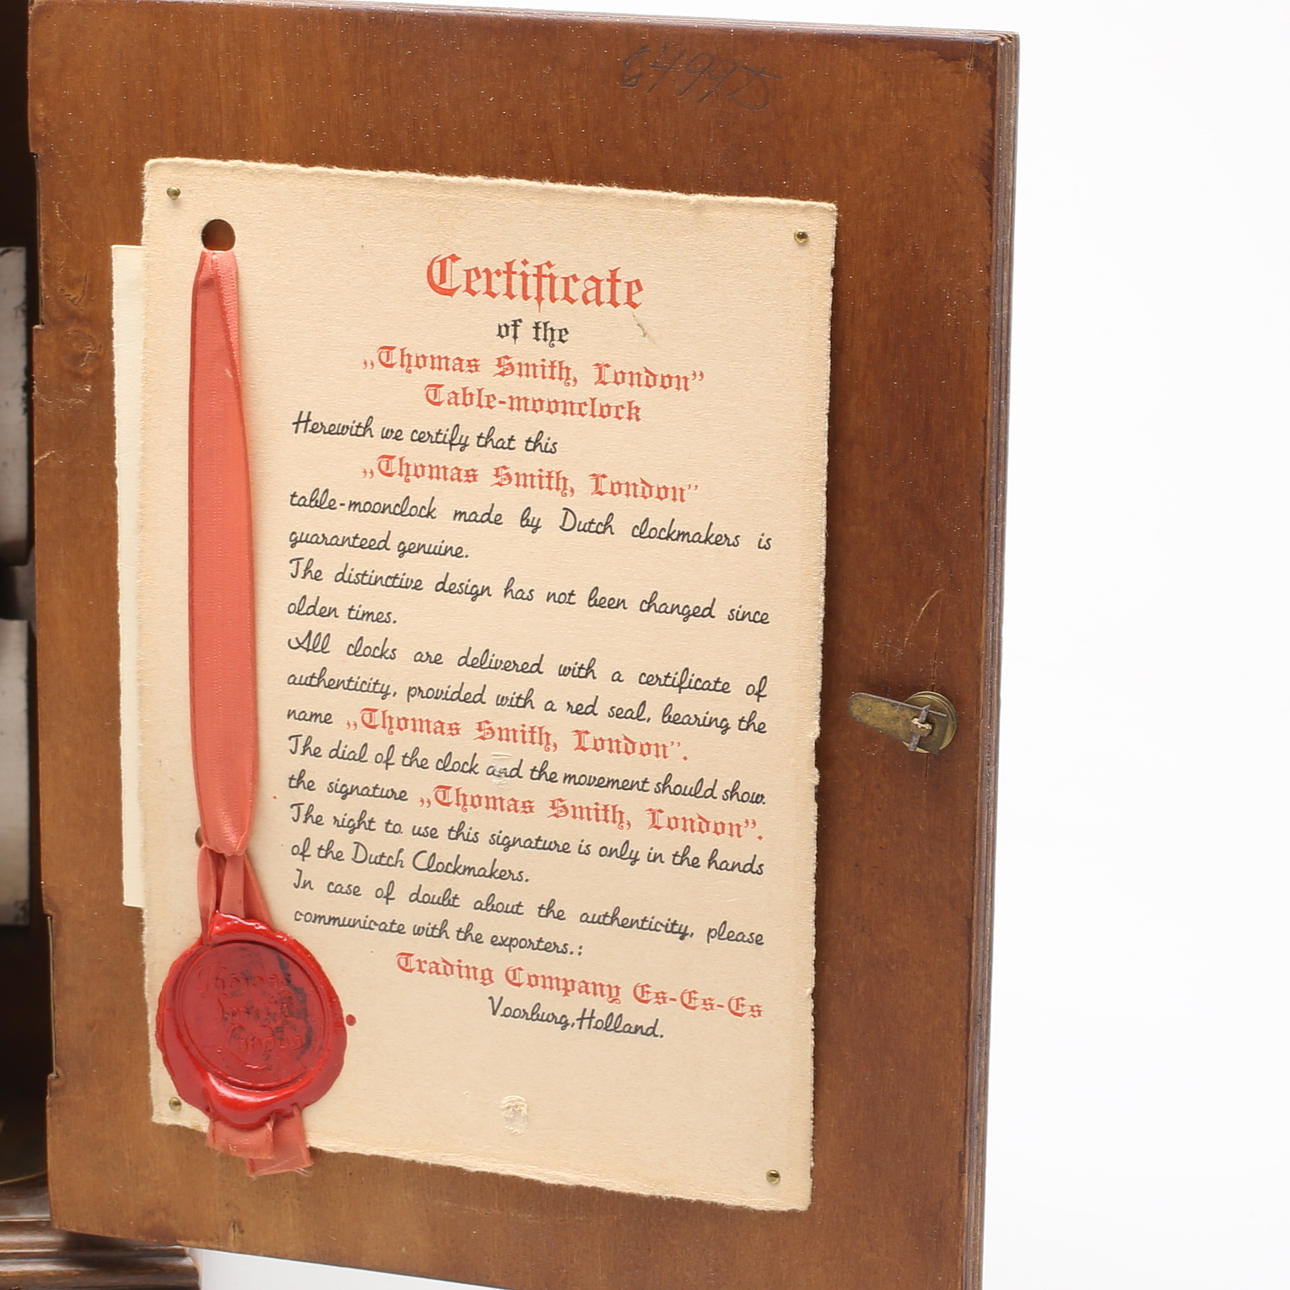 Certificate
of the
„Thomas Smith, London”
Table-moonclock
Herewith we certify that this
„Thomas Smith, London”
table-moonclock made by Dutch clockmakers is
guaranteed genuine.
The distinctive design has not been changed since
olden times.
All clocks are delivered with a certificate of
authenticity, provided with a red seal, bearing the
name „Thomas Smith, London”.
The dial of the clock and the movement should show
the signature „Thomas Smith, London”.
The right to use this signature is only in the hands
of the Dutch Clockmakers.
In case of doubt about the authenticity, please
communicate with the exporters.:
Trading Company Es-Es-Es
Voorburg, Holland.
Thomas
Smith
London